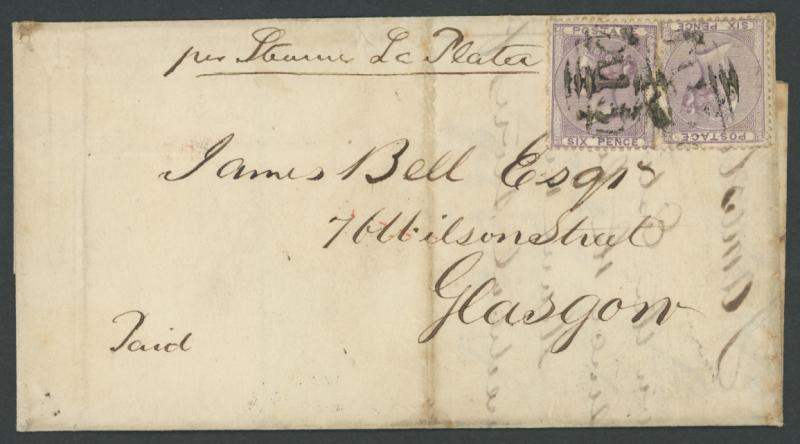 per Steamer La Plata
POSTAGE
SIX PENCE
SIX PENCE
POSTAGE
James Bell Esqr
76 Wilson Street
Glasgow
Paid